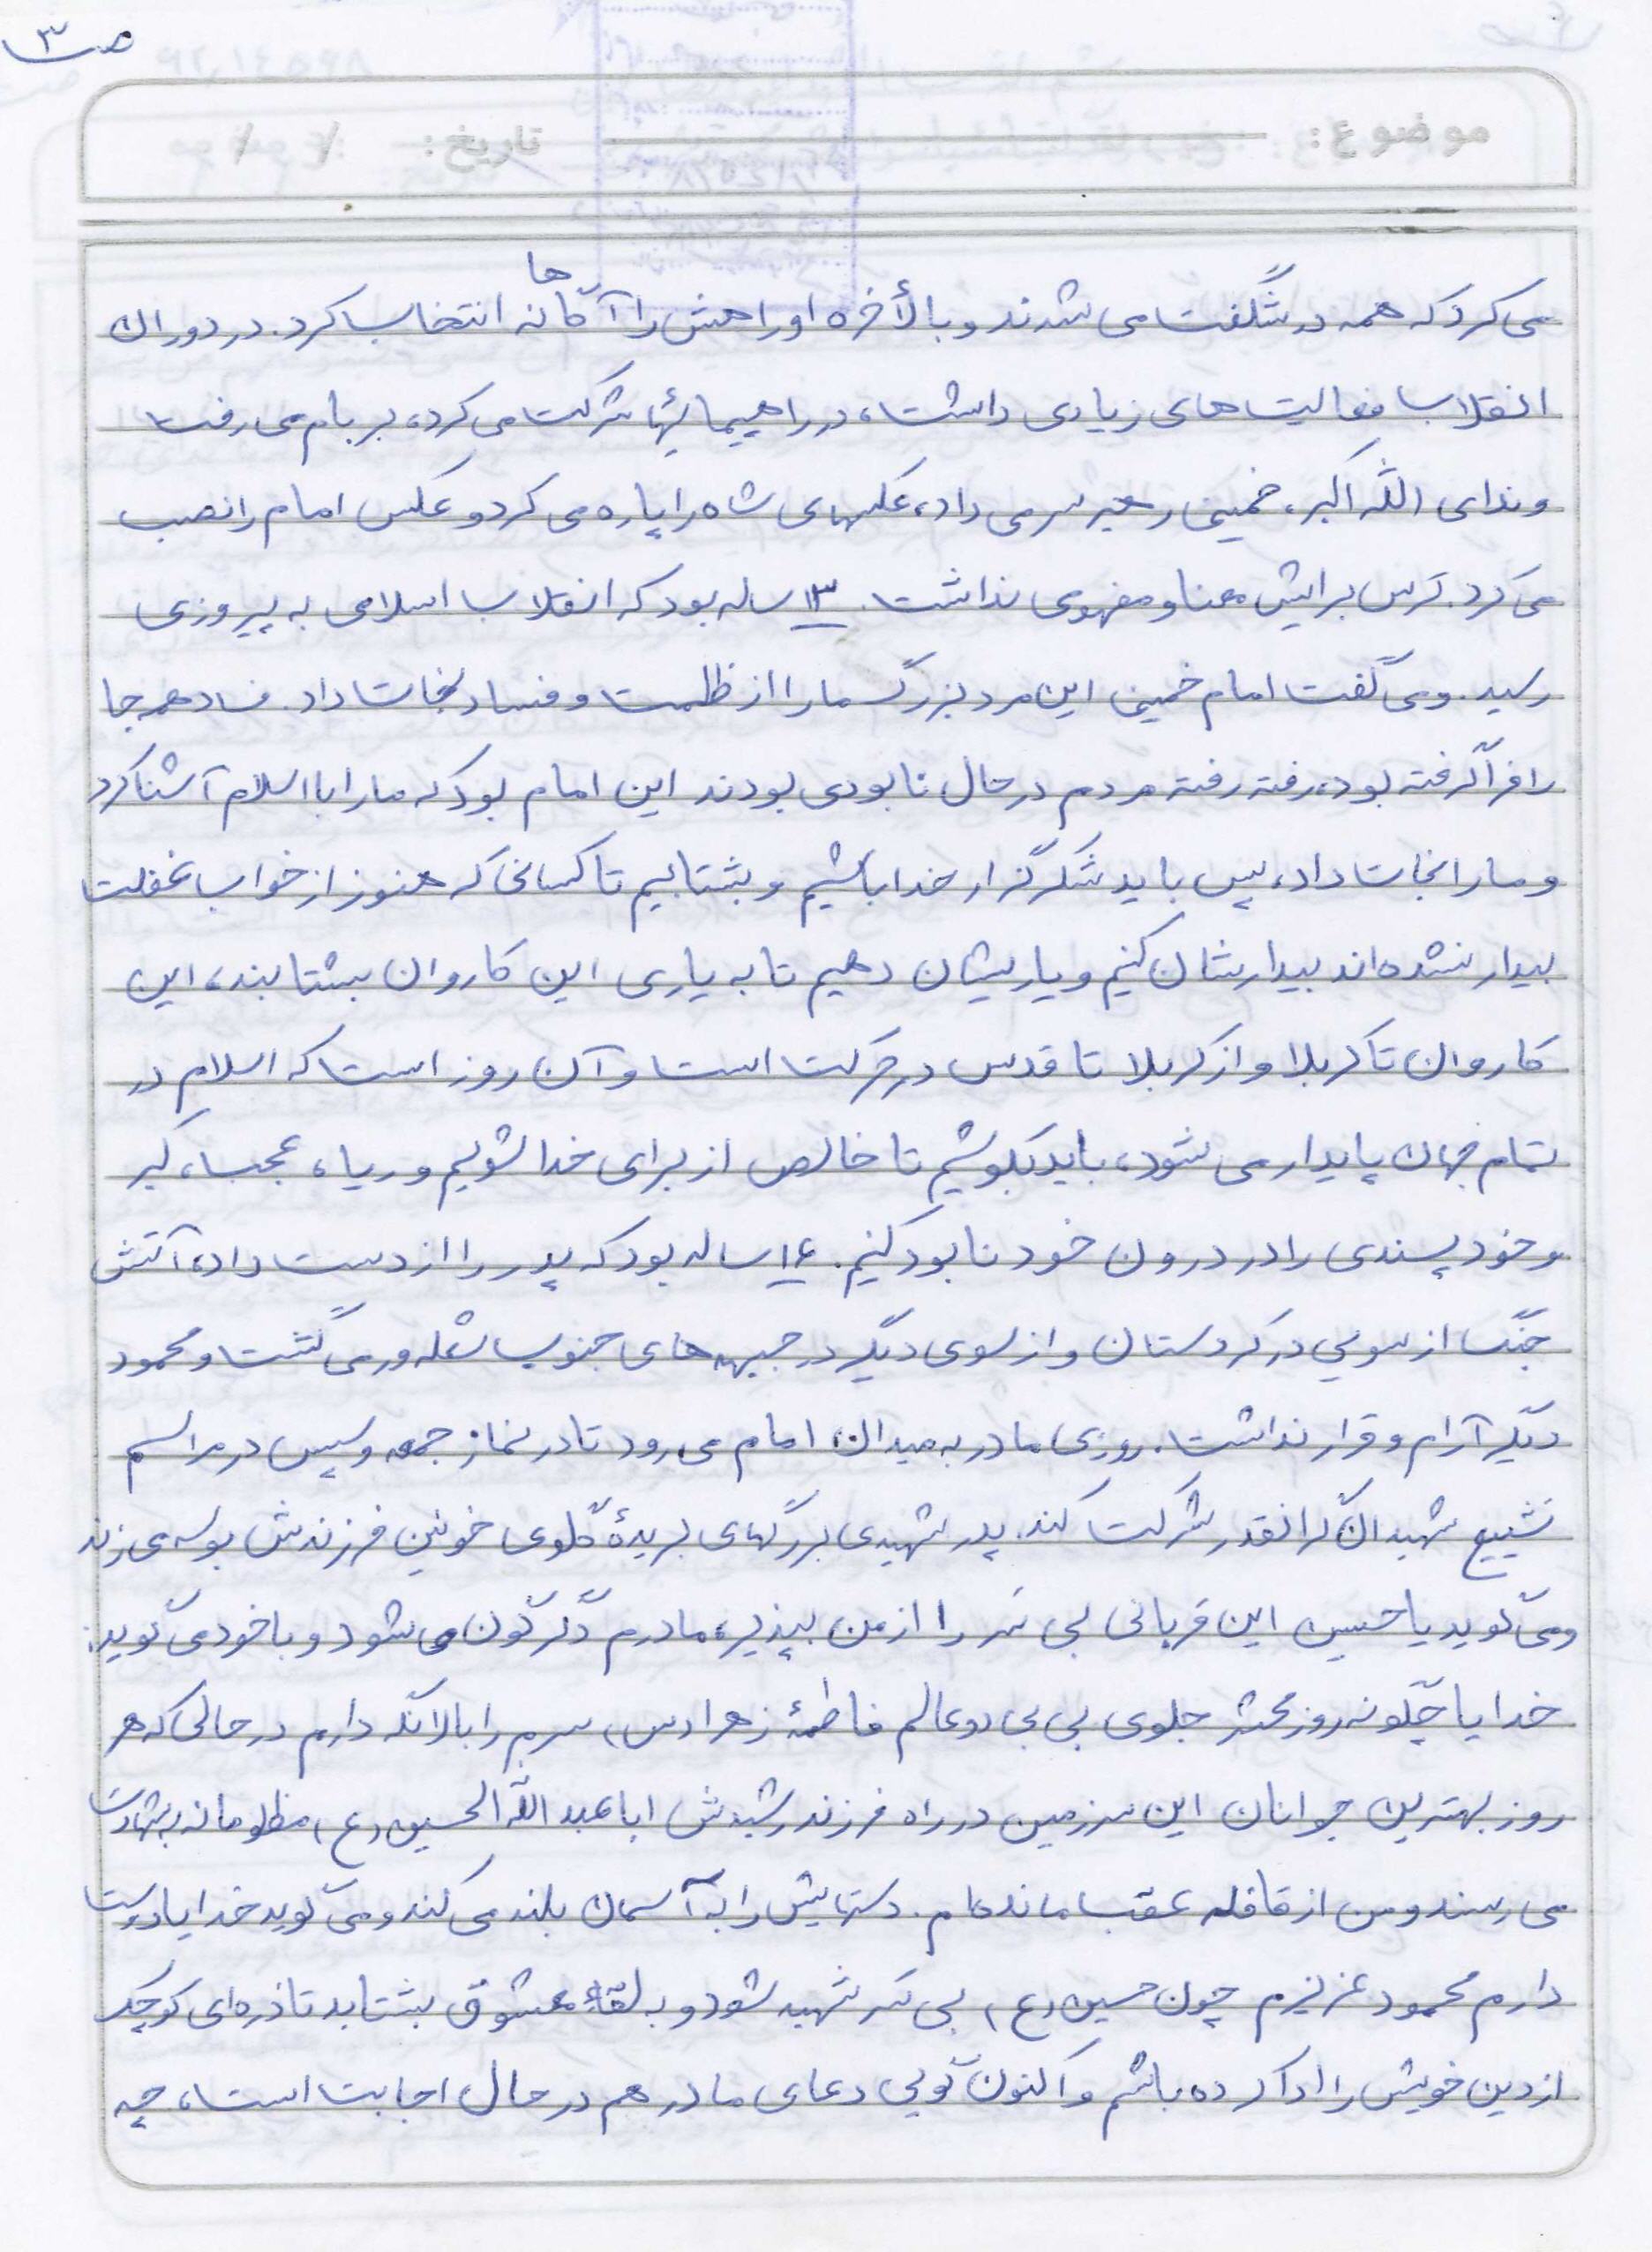 ص ۳
موضوع: تاریخ: / /
می کرد که همه در شگفت می شدند و بالأخره او راهش را آگاهانه انتخاب کرد. در دوران
انقلاب فعالیت های زیادی داشت، در راهپیمائیها شرکت می کرد، بر بام می رفت
و ندای الله اکبر، خمینی رهبر سر می داد، عکسهای شاه را پاره می کرد و عکس امام را نصب
می کرد. ترس برایش معنا و مفهومی نداشت. ۱۳ ساله بود که انقلاب اسلامی به پیروزی
رسید. و می گفت امام خمینی این مرد بزرگ ما را از ظلمت و فساد نجات داد. فساد همه جا
را فرا گرفته بود، رفته رفته مردم در حال نابودی بودند این امام بود که ما را با اسلام آشنا کرد
و ما را نجات داد، پس باید شکرگزار خدا باشیم و بشتابیم تا کسانی که هنوز از خواب غفلت
بیدار نشده اند بیدارشان کنیم و یاریشان دهیم تا به یاری این کاروان بشتابند، این
کاروان تا کربلا و از کربلا تا قدس در حرکت است و آن روز است که اسلام در
تمام جهان پایدار می شود، باید بکوشیم تا خالص از برای خدا شویم و ریا، عجب، کبر
و خودپسندی را در درون خود نابود کنیم. ۱۶ ساله بود که پدر را از دست داد، آتش
جنگ از سویی در کردستان و از سوی دیگر در جبهه های جنوب شعله ور می گشت و محمود
دیگر آرام و قرار نداشت. روزی مادر به میدان امام می رود تا در نماز جمعه و سپس در مراسم
تشییع شهیدان گرانقدر شرکت کند. پدر شهیدی بر رگهای بریدۀ گلوی خونین فرزندش بوسه می زند
و می گوید یا حسین این قربانی بی سر را از من بپذیر، مادرم دگرگون می شود و با خود می گوید:
خدایا چگونه روز محشر جلوی بی بی دو عالم فاطمۀ زهرا (س) سرم را بالا نگه دارم در حالی که هر
روز بهترین جوانان این سرزمین در راه فرزند رشیدش اباعبدالله الحسین (ع) مظلومانه به شهادت
می رسند و من از قافله عقب مانده ام. دستهایش را به آسمان بلند می کند و می گوید خدایا دوست
دارم محمود عزیزم چون حسین (ع) بی سر شهید شود و به لقاء معشوق بشتابد تا ذره ای کوچک
از دین خویش را ادا کرده باشم و اکنون گویی دعای مادر هم در حال اجابت است، چه